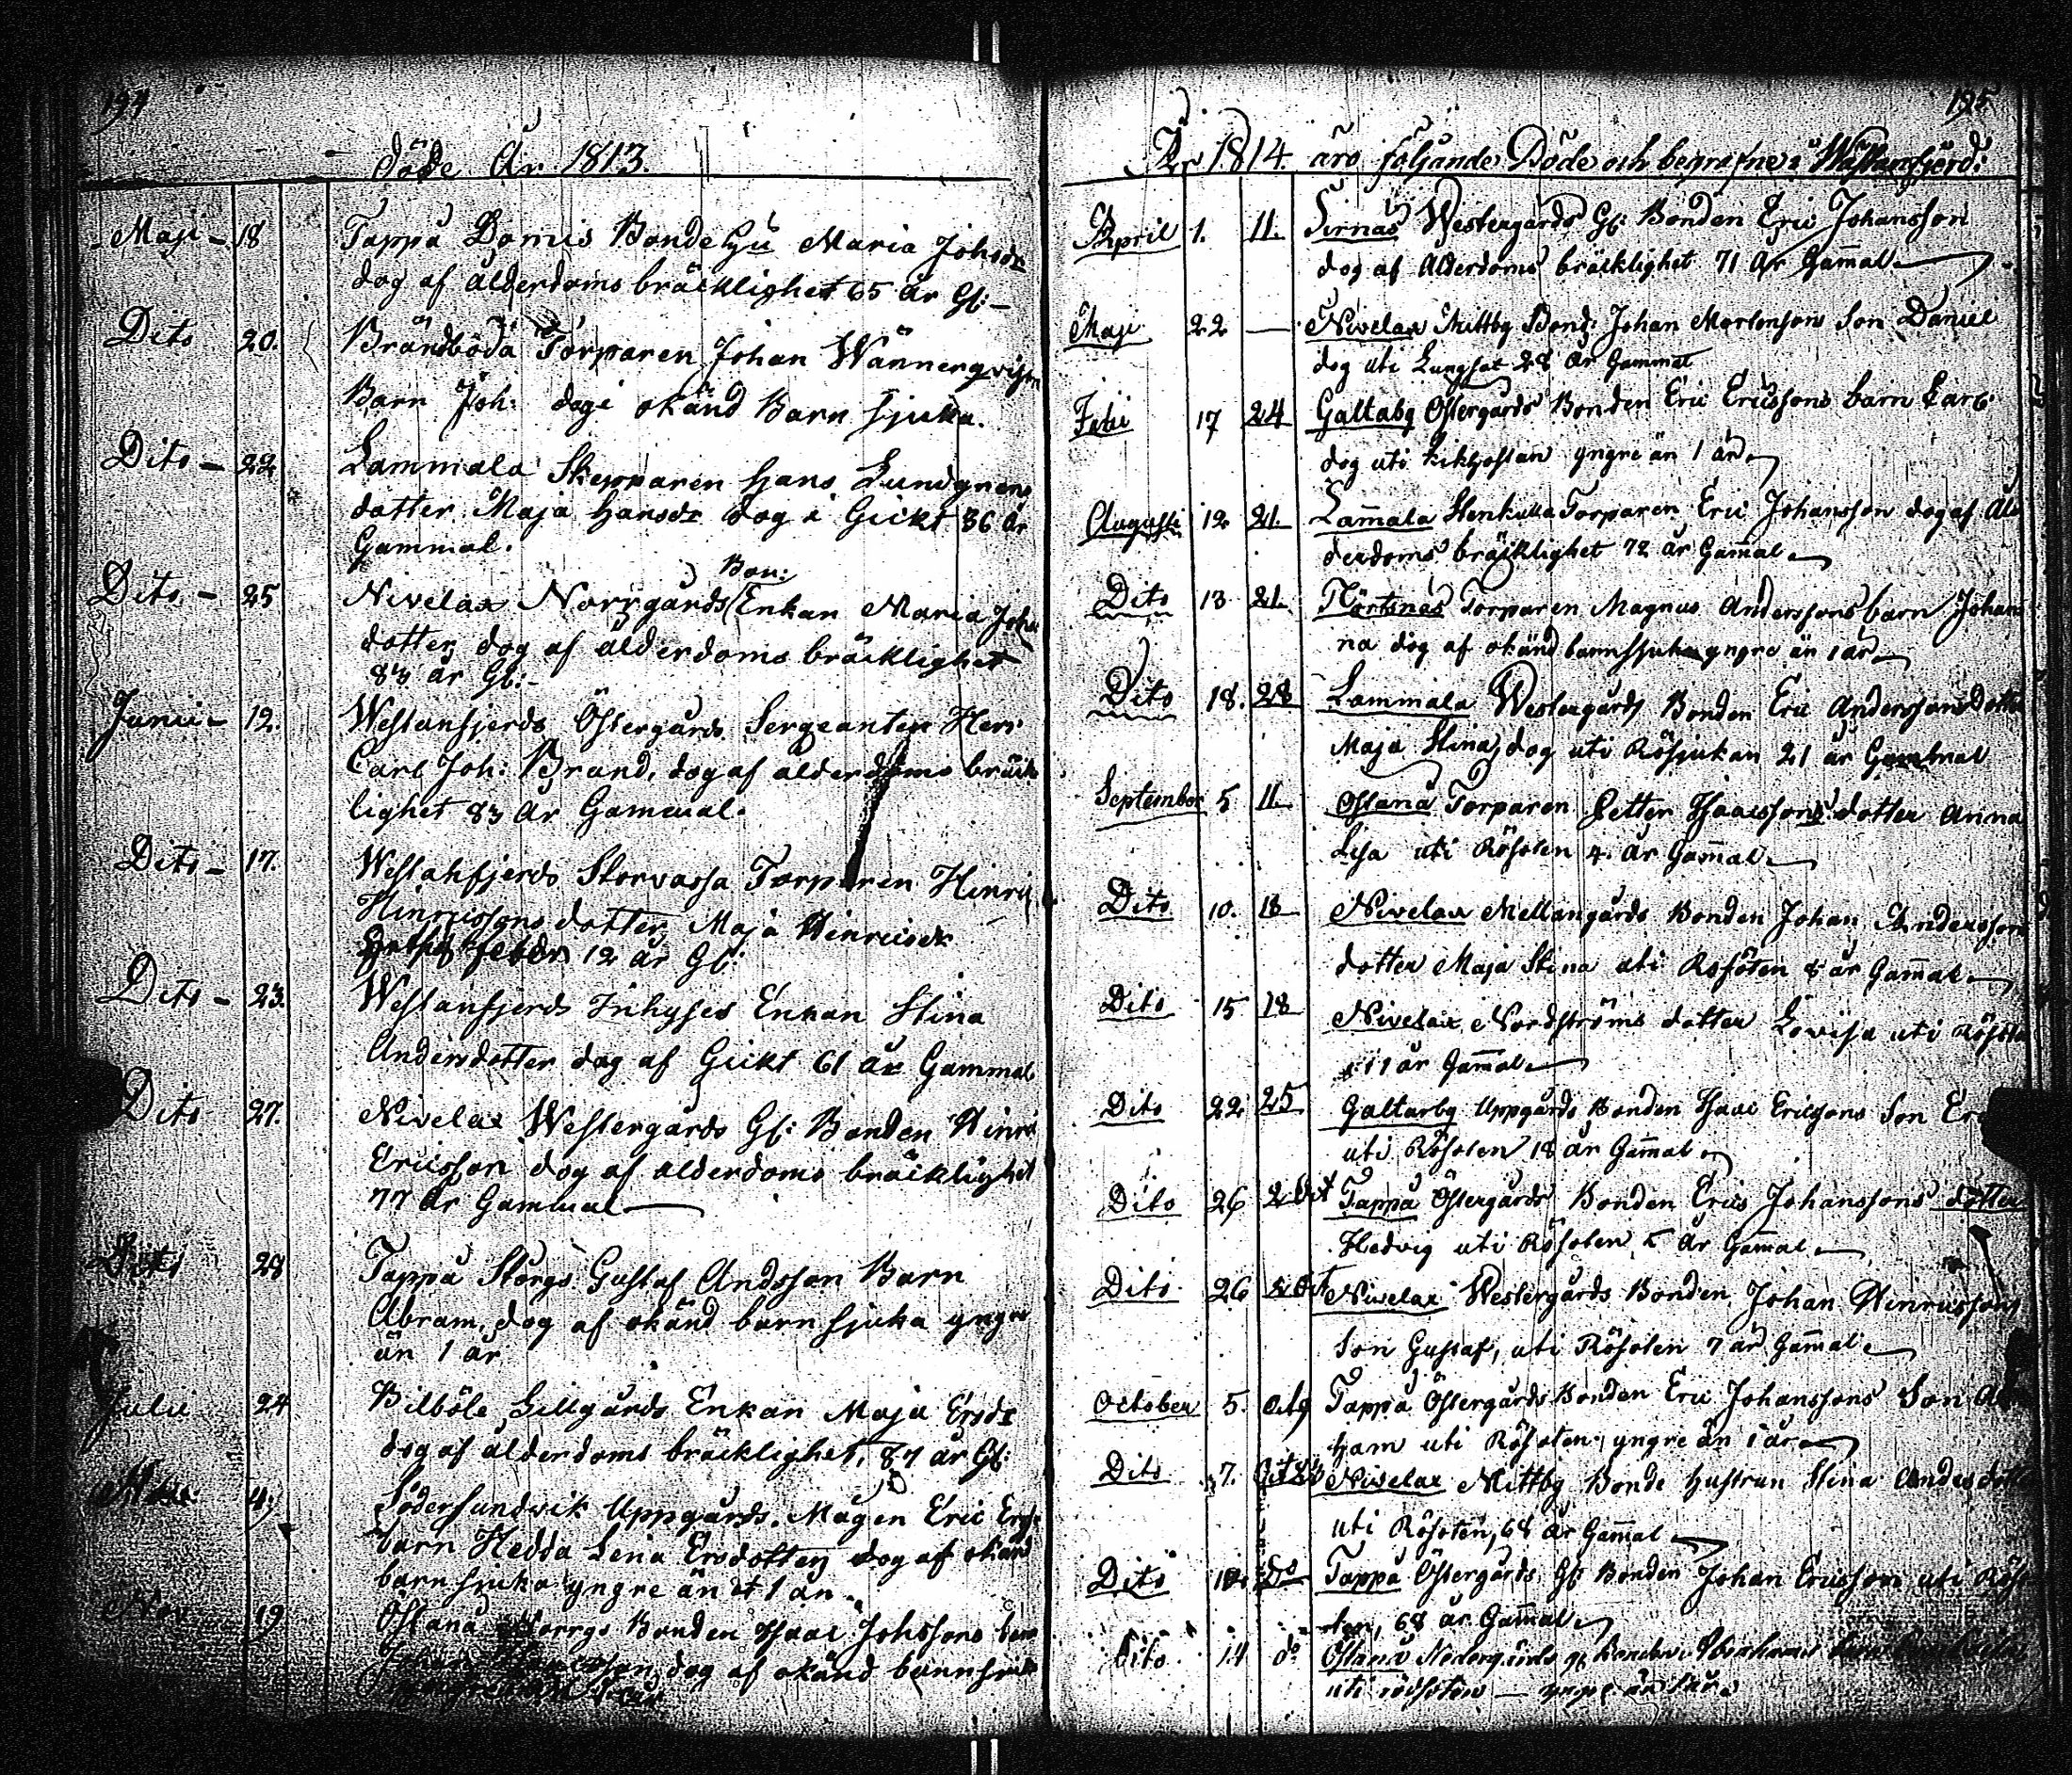 194
Döde År 1813.
Maji - 18 Tappå Domis Bonde Hu Maria Johsdr
dog af ålderdoms bräcklighet 65 år Gl: -
Dito 20. Brändböda Torparen Johan Wännerqvists
Barn Joh: dog i okänd Barn sjuka.
Dito - 22 Lammala Skepparen Hans Lundgrens
dotter Maja Hansdr dog i Gickt 36 år
Gammal.
Dito - 25 Nivelax Norrgårds Bon: Enkan Maria Joha
dotter dog af ålderdoms bräcklighet
83 år Gl: -
Junii - 12. Westanfjerds Östergårds Sergeanten Herr
Carl Joh: Brand, dog af ålderdoms bräck
lighet 83 år Gammal.
Dito - 17. Westanfjerds Storvassa Torparen Hinric
Hinricssons dotter Maja Hinricsdr
feber 12 år Gl:
Dito - 23. Westanfjerds Inhyses Enkan Stina
Andersdotter dog af Gickt 61 år Gammal
Dito 27. Nivelax Westergårds Gl: Bonden Hinric
Ericsson dog af ålderdoms bräcklighet
77 år Gammal
Dito 28 Tappå Störgs Gustaf Andsson Barn
Abram, dog af okänd barn sjuka yngre
än 1 år
Julii 24 Bilböle Lillgårds Enkan Maja Ersdr
dog af ålderdoms bräcklighet, 87 år Gl:
4. Södersundvik Uppgårds Mågen Eric Ers
barn Hedda Lena Ersdotter dog af okänd
barn sjuka yngre än et 1 år
Nov 19 Östanå Norrgs Bonden Isaac Johssons barn
dog af okänd barnsjuka
195
År 1814 äro följande Döde och begrafne i Westanfjerd:
April 1. 11. Sirnäs Westergårds Gl: Bonden Eric Johansson
dog af Ålderdoms bräcklighet 71 år Gammal
Maji 22 — Nivelax Mittby Bond: Johan Mortensons Son Daniel
dog uti Lungsot 28 år Gammal
Julii 17 24 Galtaby Östergårds Bonden Eric Ericssons barn Carl
dog uti Kikhostan yngre än 1 år
Augusti 12 21 Lam̄ala Stenkulla Torparen Eric Johansson dog af Ål
derdoms bräcklighet 72 år Gam̄al
Dito 13 21 Torparen Magnus Anderssons barn Johan
na dog af okänd barnsjuka yngre än 1 år
Dito 18. 28 Lammala Westergårds Bonden Eric Anderssons Dotter
Maja Stina, dog uti Rösjukan 21 år Gammal
September 5 11 Östanå Torparen Petter Isaacssons dotter Anna
Lisa uti Rösoten 4. år Gam̄al
Dito 10. 18 Nivelax Mellangårds Bonden Johan Andersson
dotter Maja Stina uti Rösoten 8 år Gam̄al
Dito 15 18 Nivelax Nordströms dotter Lovisa uti Rösoten
11 år Gam̄al
Dito 22 25 Galtarby Uppgårds Bonden Isaac Ericssons Son Er
uti Rösoten 18 år Gam̄al
Dito 26 2 Oct Tappå Östergårds Bonden Erics Johanssons dotter
Hedvig uti Rösoten 5 år Gam̄al
Dito 26 2 Oct Nivelax Westergårds Bonden Johan Hinricssons
Son Gustaf, uti Rösoten 7 år Gam̄al
October 5. Oct 9 Tappå Östergårds Bonden Eric Johanssons Son Abra
ham uti Rösoten yngre än 1 år
Dito 7. Nivelax Mittby Bonde Hustrun Stina Andersdott
uti Rösoten, 68 år Gam̄al
Dito 10. Do Tappå Östergårds Gl: Bonden Johan Ericsson uti Rös
oten, 68 år Gam̄al
Dito 14 do Östanå Nedergårds
uti rödsoten — yngre än 1 år